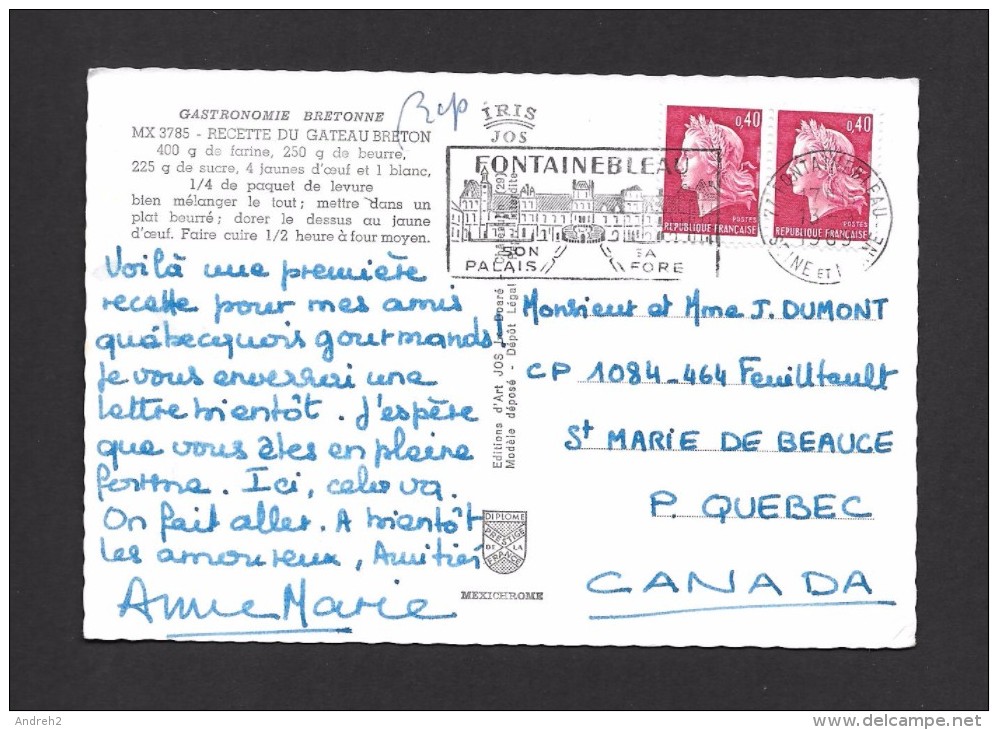 GASTRONOMIE BRETONNE
MX 3785 - RECETTE DU GATEAU BRETON
400 g de farine, 250 g de beurre,
225 g de sucre, 4 jaunes d'œuf et 1 blanc,
1/4 de paquet de levure
bien mélanger le tout; mettre dans un
plat beurré; dorer le dessus au jaune
d'œuf. Faire cuire 1/2 heure à four moyen.
Rep
IRIS
JOS
FONTAINEBLEAU
SON
PALAIS
SA
FORE
0,40
POSTES
REPUBLIQUE FRANÇAISE
0,40
POSTES
REPUBLIQUE FRANÇAISE
Voilà une première
recette pour mes amis
québecquois gourmands!
Je vous enverrai une
lettre bientôt. J'espère
que vous êtes en pleine
forme. Ici, cela va.
On fait aller. A bientôt
les amoureux, Amitiés
Anne Marie
Editions d'Art JOS Le Doaré
Modèle déposé - Dépôt Légal
DIPLOME
PRESTIGE
DE LA
FRANCE
MEXICHROME
Monsieur et Mme J. DUMONT
CP 1084-464 Feuilltault
St MARIE DE BEAUCE
P. QUEBEC
CANADA
Andreh2
delcampe.net